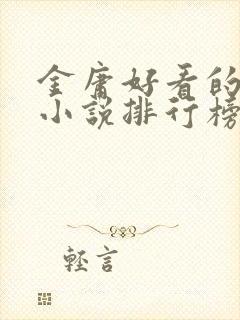 金庸好看的
小说排行榜
轻言